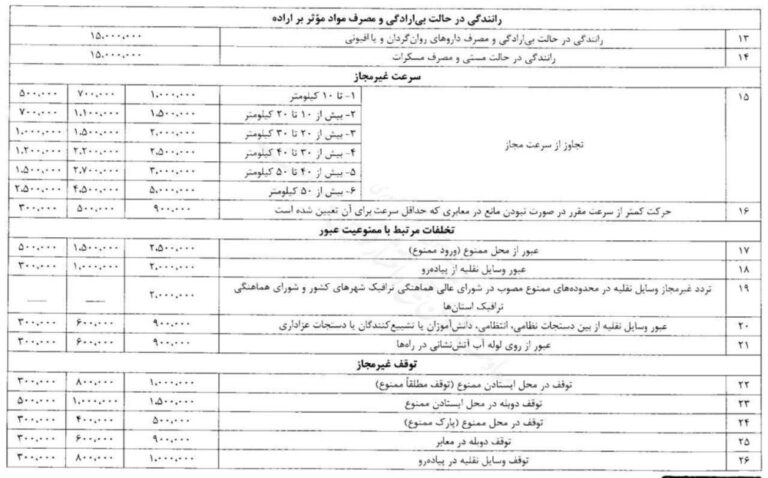 رانندگی در حالت بی‌ارادگی و مصرف مواد مؤثر بر اراده
۱۳ رانندگی در حالت بی‌ارادگی و مصرف داروهای روان‌گردان و یا افیونی ۱۵.۰۰۰.۰۰۰
۱۴ رانندگی در حالت مستی و مصرف مسکرات ۱۵.۰۰۰.۰۰۰
سرعت غیرمجاز
۱۵ تجاوز از سرعت مجاز
۱- تا ۱۰ کیلومتر ۱.۰۰۰.۰۰۰ ۷۰۰.۰۰۰ ۵۰۰.۰۰۰
۲- بیش از ۱۰ تا ۲۰ کیلومتر ۱.۵۰۰.۰۰۰ ۱.۱۰۰.۰۰۰ ۷۰۰.۰۰۰
۳- بیش از ۲۰ تا ۳۰ کیلومتر ۲.۰۰۰.۰۰۰ ۱.۵۰۰.۰۰۰ ۱.۰۰۰.۰۰۰
۴- بیش از ۳۰ تا ۴۰ کیلومتر ۲.۵۰۰.۰۰۰ ۲.۲۰۰.۰۰۰ ۱.۲۰۰.۰۰۰
۵- بیش از ۴۰ تا ۵۰ کیلومتر ۳.۰۰۰.۰۰۰ ۲.۷۰۰.۰۰۰ ۱.۵۰۰.۰۰۰
۶- بیش از ۵۰ کیلومتر ۵.۰۰۰.۰۰۰ ۴.۵۰۰.۰۰۰ ۲.۵۰۰.۰۰۰
۱۶ حرکت کمتر از سرعت مقرر در صورت نبودن مانع در معابری که حداقل سرعت برای آن تعیین شده است ۹۰۰.۰۰۰ ۵۰۰.۰۰۰ ۳۰۰.۰۰۰
تخلفات مرتبط با ممنوعیت عبور
۱۷ عبور از محل ممنوع (ورود ممنوع) ۲.۵۰۰.۰۰۰ ۱.۵۰۰.۰۰۰ ۵۰۰.۰۰۰
۱۸ عبور وسایل نقلیه از پیاده‌رو ۲.۰۰۰.۰۰۰ ۱.۰۰۰.۰۰۰ ۳۰۰.۰۰۰
۱۹ تردد غیرمجاز وسایل نقلیه در محدوده‌های ممنوع مصوب در شورای عالی هماهنگی ترافیک شهرهای کشور و شورای هماهنگی ۲.۰۰۰.۰۰۰ — —
ترافیک استان‌ها
۲۰ عبور وسایل نقلیه از بین دستجات نظامی، انتظامی، دانش‌آموزان یا تشییع‌کنندگان یا دستجات عزاداری ۹۰۰.۰۰۰ ۶۰۰.۰۰۰ ۳۰۰.۰۰۰
۲۱ عبور از روی لوله آب آتش‌نشانی در راه‌ها ۹۰۰.۰۰۰ ۶۰۰.۰۰۰ ۳۰۰.۰۰۰
توقف غیرمجاز
۲۲ توقف در محل ایستادن ممنوع (توقف مطلقاً ممنوع) ۱.۰۰۰.۰۰۰ ۸۰۰.۰۰۰ ۳۰۰.۰۰۰
۲۳ توقف دوبله در محل ایستادن ممنوع ۱.۵۰۰.۰۰۰ ۱.۰۰۰.۰۰۰ ۵۰۰.۰۰۰
۲۴ توقف در محل ممنوع (پارک ممنوع) ۵۰۰.۰۰۰ ۴۰۰.۰۰۰ ۳۰۰.۰۰۰
۲۵ توقف دوبله در معابر ۹۰۰.۰۰۰ ۶۰۰.۰۰۰ ۳۰۰.۰۰۰
۲۶ توقف وسایل نقلیه در پیاده‌رو ۱.۰۰۰.۰۰۰ ۸۰۰.۰۰۰ ۳۰۰.۰۰۰